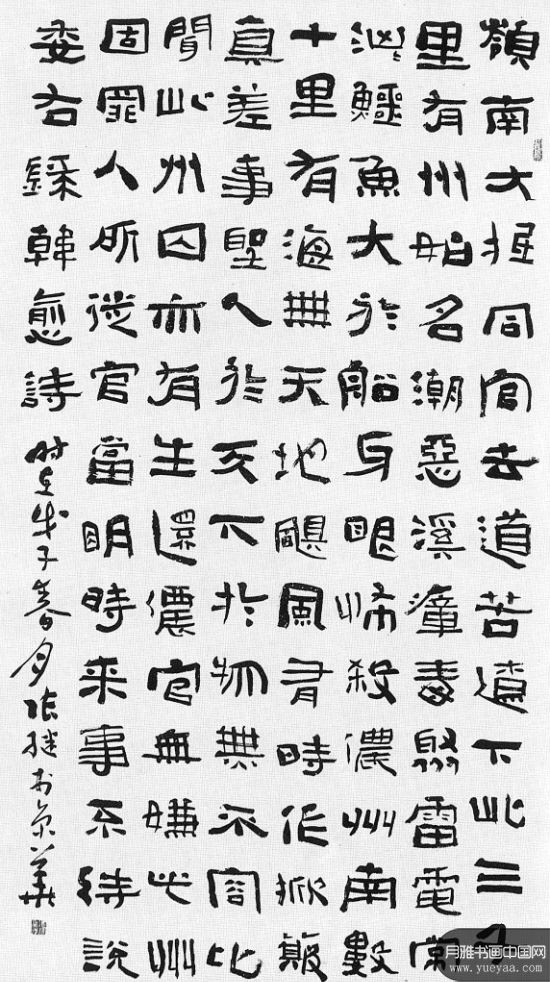 嶺南大抵同官去道苦遼下此三千
里有州始名潮惡溪瘴毒聚雷電常
洶〻鱷魚大於船牙眼怖殺儂州南數
十里有海無天地颶風有時作掀簸
真差事聖人於天下於物無不容比
聞此州囚亦有生還儂官無嫌此州
固罪人所徙官當明時来事不待說
委右録韓愈詩 时在戊子春月张继於京華
月雅书画中国网
www.yueyaa.com